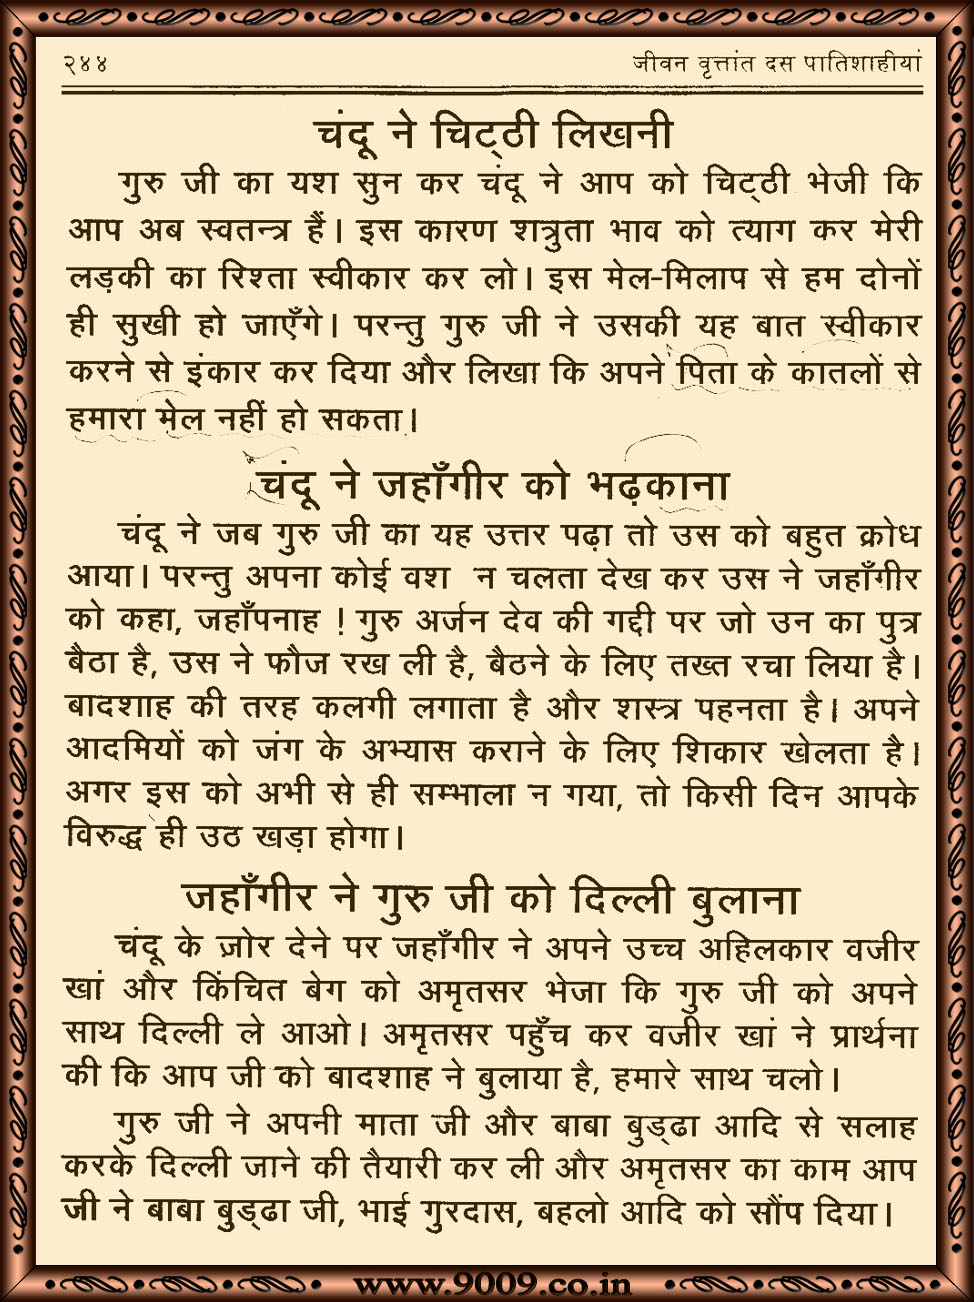 २४४ जीवन वृत्तांत दस पातिशाहीयां
चंदू ने चिट्ठी लिखनी
गुरु जी का यश सुन कर चंदू ने आप को चिट्ठी भेजी कि
आप अब स्वतन्त्र हैं। इस कारण शत्रुता भाव को त्याग कर मेरी
लड़की का रिश्ता स्वीकार कर लो। इस मेल-मिलाप से हम दोनों
ही सुखी हो जाएँगे। परन्तु गुरु जी ने उसकी यह बात स्वीकार
करने से इंकार कर दिया और लिखा कि अपने पिता के कातलों से
हमारा मेल नहीं हो सकता।
चंदू ने जहाँगीर को भढ़काना
चंदू ने जब गुरु जी का यह उत्तर पढ़ा तो उस को बहुत क्रोध
आया। परन्तु अपना कोई वश न चलता देख कर उस ने जहाँगीर
को कहा, जहाँपनाह ! गुरु अर्जन देव की गद्दी पर जो उन का पुत्र
बैठा है, उस ने फौज रख ली है, बैठने के लिए तख्त रचा लिया है।
बादशाह की तरह कलगी लगाता है और शस्त्र पहनता है। अपने
आदमियों को जंग के अभ्यास कराने के लिए शिकार खेलता है।
अगर इस को अभी से ही सम्भाला न गया, तो किसी दिन आपके
विरुद्ध ही उठ खड़ा होगा।
जहाँगीर ने गुरु जी को दिल्ली बुलाना
चंदू के ज़ोर देने पर जहाँगीर ने अपने उच्च अहिलकार वजीर
खां और किंचित बेग को अमृतसर भेजा कि गुरु जी को अपने
साथ दिल्ली ले आओ। अमृतसर पहुँच कर वजीर खां ने प्रार्थना
की कि आप जी को बादशाह ने बुलाया है, हमारे साथ चलो।
गुरु जी ने अपनी माता जी और बाबा बुड्ढा आदि से सलाह
करके दिल्ली जाने की तैयारी कर ली और अमृतसर का काम आप
जी ने बाबा बुड्ढा जी, भाई गुरदास, बहलो आदि को सौंप दिया।
www.9009.co.in